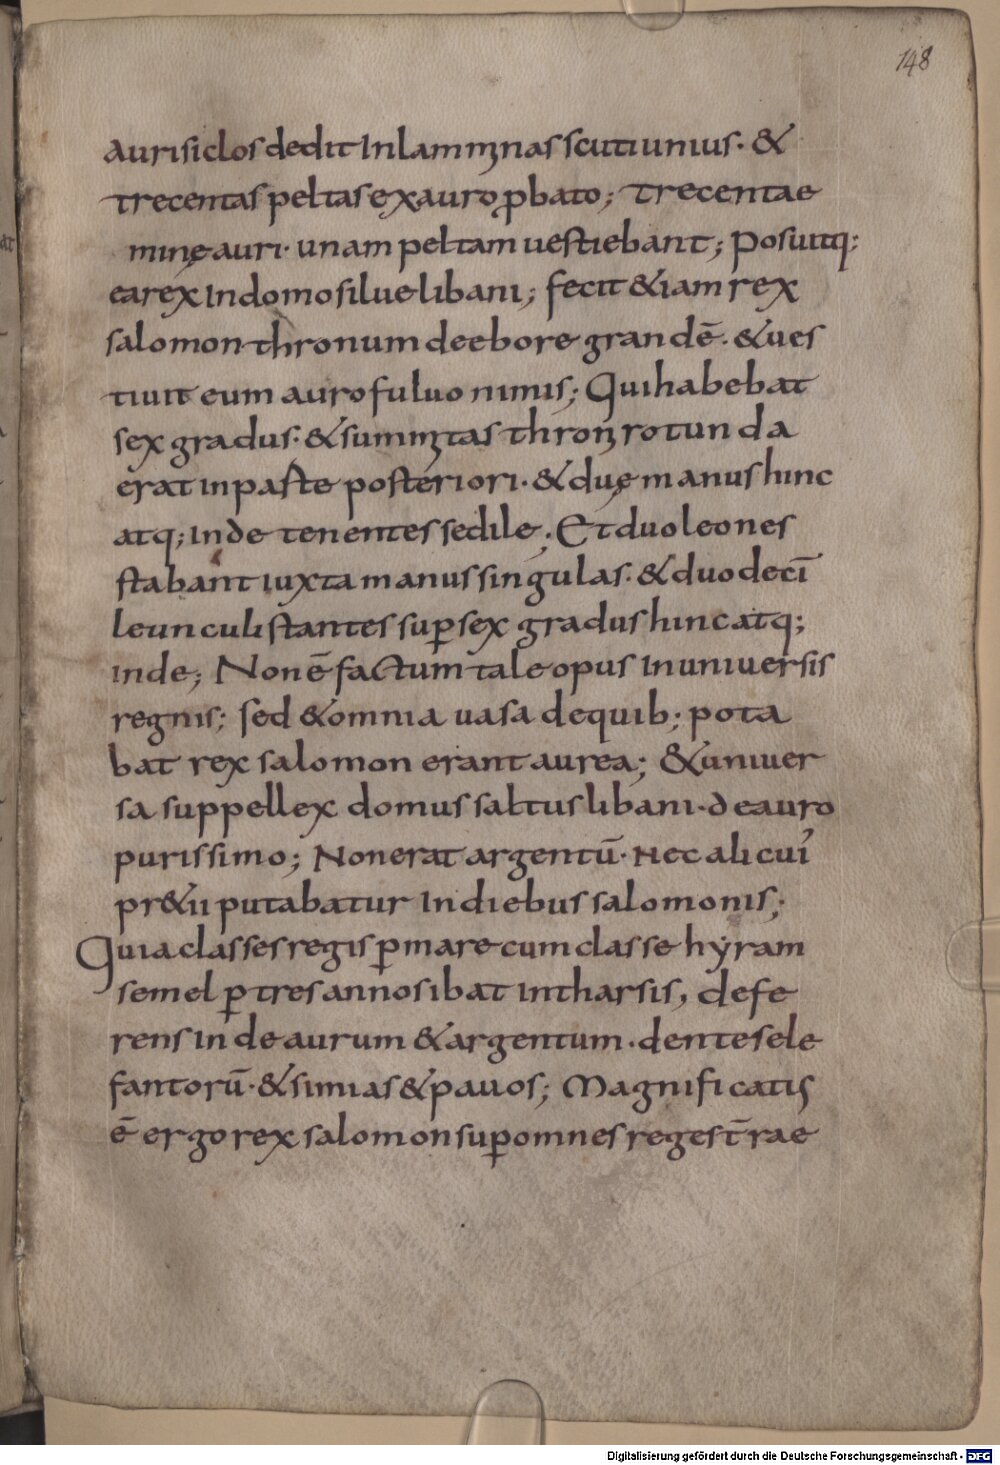 148
auri siclos dedit In lamminas scuti unius· &
trecentas peltas ex auro ꝓbato; trecentae
minę auri· unam peltam uestiebant; Posuitq;
ea rex In domo silue libani; fecit & iam rex
salomon thronum de ebore grandē· & ues
tiuit eum auro fuluo nimis; Qui habebat
sex gradus· & summitas throni rotunda
erat in paste posteriori· & duę manus hinc
atq; Inde tenentes sedile; Et duo leones
stabant iuxta manus singulas· & duodecī
leunculi stantes sup̲ sex gradus hinc atq;
inde; Non ē factum tale opus In uniuersis
regnis; sed & omnia uasa de quib; pota
bat rex salomon erant aurea; & uniuer
sa suppellex domus saltus libani· de auro
purissimo; Non erat argentū· Nec alicui'
pr&ii putabatur In diebus salomonis;
Quia classes regis p̲ mare cum classe hyram
semel p̲ tres annos ibat In tharsis, defe
rens In de aurum & argentum· dentes ele
fantorū· & simias & pauos; Magnificatis
ē ergo rex salomon sup̲ omnes reges t̄rae
Digitalisierung gefördert durch die Deutsche Forschungsgemeinschaft - DFG